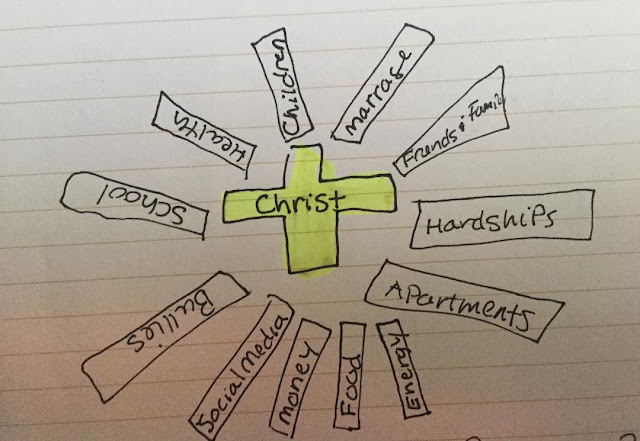 Children
marrage
Health
Friends & Famil
School
Christ
Hardships
Apartments
Bullies
Social media
money
Food
Energy